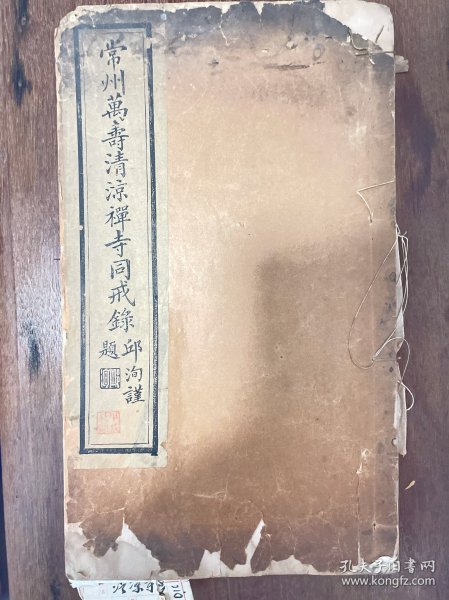 常州萬壽清涼禪寺同戒錄
邱洵謹
題
孔夫子旧书网
www.kongfz.com